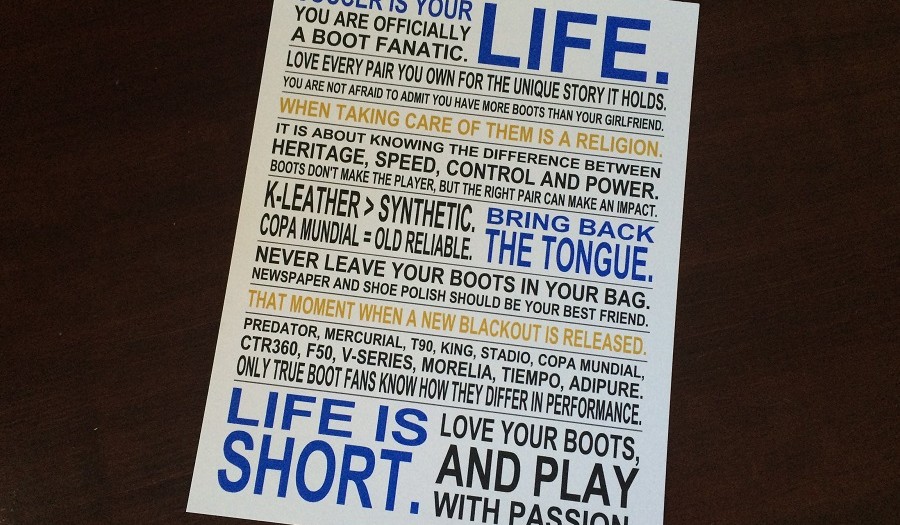 SOCCER IS YOUR
LIFE.
YOU ARE OFFICIALLY
A BOOT FANATIC.
LOVE EVERY PAIR YOU OWN FOR THE UNIQUE STORY IT HOLDS.
YOU ARE NOT AFRAID TO ADMIT YOU HAVE MORE BOOTS THAN YOUR GIRLFRIEND.
WHEN TAKING CARE OF THEM IS A RELIGION.
IT IS ABOUT KNOWING THE DIFFERENCE BETWEEN
HERITAGE, SPEED, CONTROL AND POWER.
BOOTS DON'T MAKE THE PLAYER, BUT THE RIGHT PAIR CAN MAKE AN IMPACT.
K-LEATHER > SYNTHETIC.
COPA MUNDIAL = OLD RELIABLE.
BRING BACK
THE TONGUE.
NEVER LEAVE YOUR BOOTS IN YOUR BAG.
NEWSPAPER AND SHOE POLISH SHOULD BE YOUR BEST FRIEND.
THAT MOMENT WHEN A NEW BLACKOUT IS RELEASED.
PREDATOR, MERCURIAL, T90, KING, STADIO, COPA MUNDIAL,
CTR360, F50, V-SERIES, MORELIA, TIEMPO, ADIPURE.
ONLY TRUE BOOT FANS KNOW HOW THEY DIFFER IN PERFORMANCE.
LIFE IS
SHORT.
LOVE YOUR BOOTS,
AND PLAY
WITH PASSION